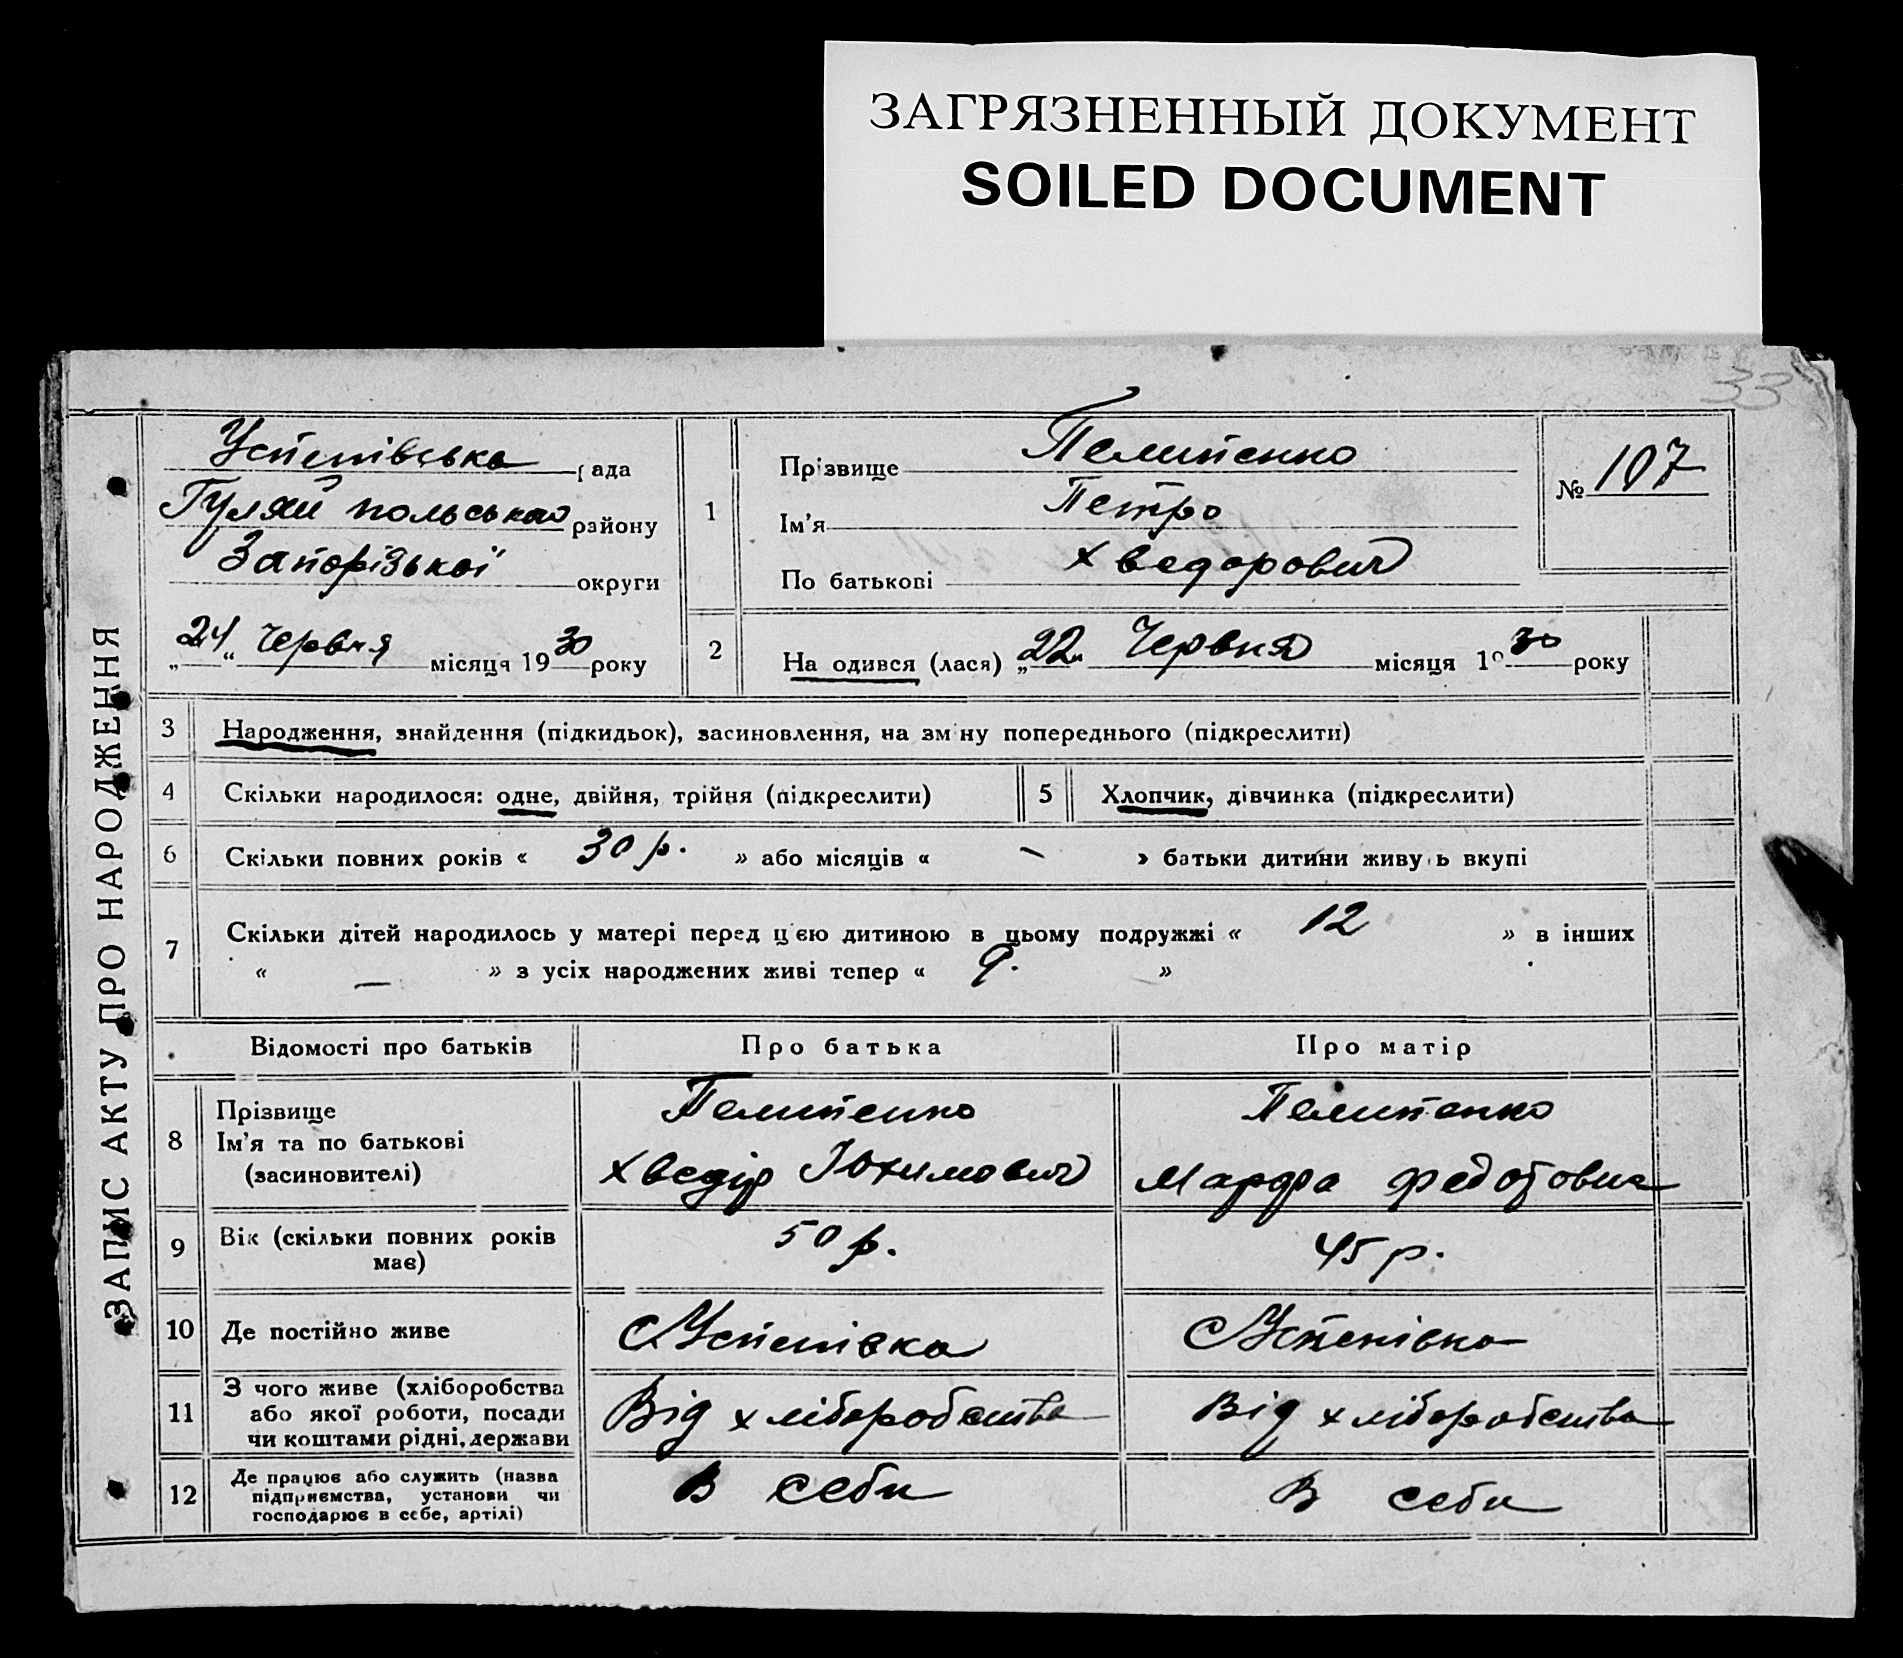 ЗАГРЯЗНЕННЫЙ ДОКУМЕНТ
SOILED DOCUMENT
33
ЗАПИС АКТУ ПРО НАРОДЖЕННЯ
Успенівська рада
Гуляй польського району
Запорізької округи
„24“ Червня місяця 1930 року
1
Прізвище Пелипенко
Ім'я Петро
По батькові Хведорович
№ 107
2
На одився (лася) „22“ Червня місяця 1930 року
3 Народження, знайдення (підкидьок), засиновлення, на зміну попереднього (підкреслити)
4 Скільки народилося: одне, двійня, трійня (підкреслити) 5 Хлопчик, дівчинка (підкреслити)
6 Скільки повних років « 30 р. » або місяців « — » батьки дитини живуть вкупі
7 Скільки дітей народилось у матері перед цією дитиною в цьому подружжі « 12 » в інших
« — » з усіх народжених живі тепер « 9. »
Відомості про батьків Про батька Про матір
8 Прізвище Пелипенко Пелипенко
Ім'я та по батькові Хведір Юхимович Марфа Федотовна
(засиновителі)
9 Вік (скільки повних років має) 50 р. 45 р.
10 Де постійно живе С Успенівка С Успенівка
11 З чого живе (хліборобства
або якої роботи, посади Від хліборобства Від хліборобства
чи коштами рідні, держави
12 Де працює або служить (назва
підприємства, установи чи В себи В себи
господарює в себе, артілі)